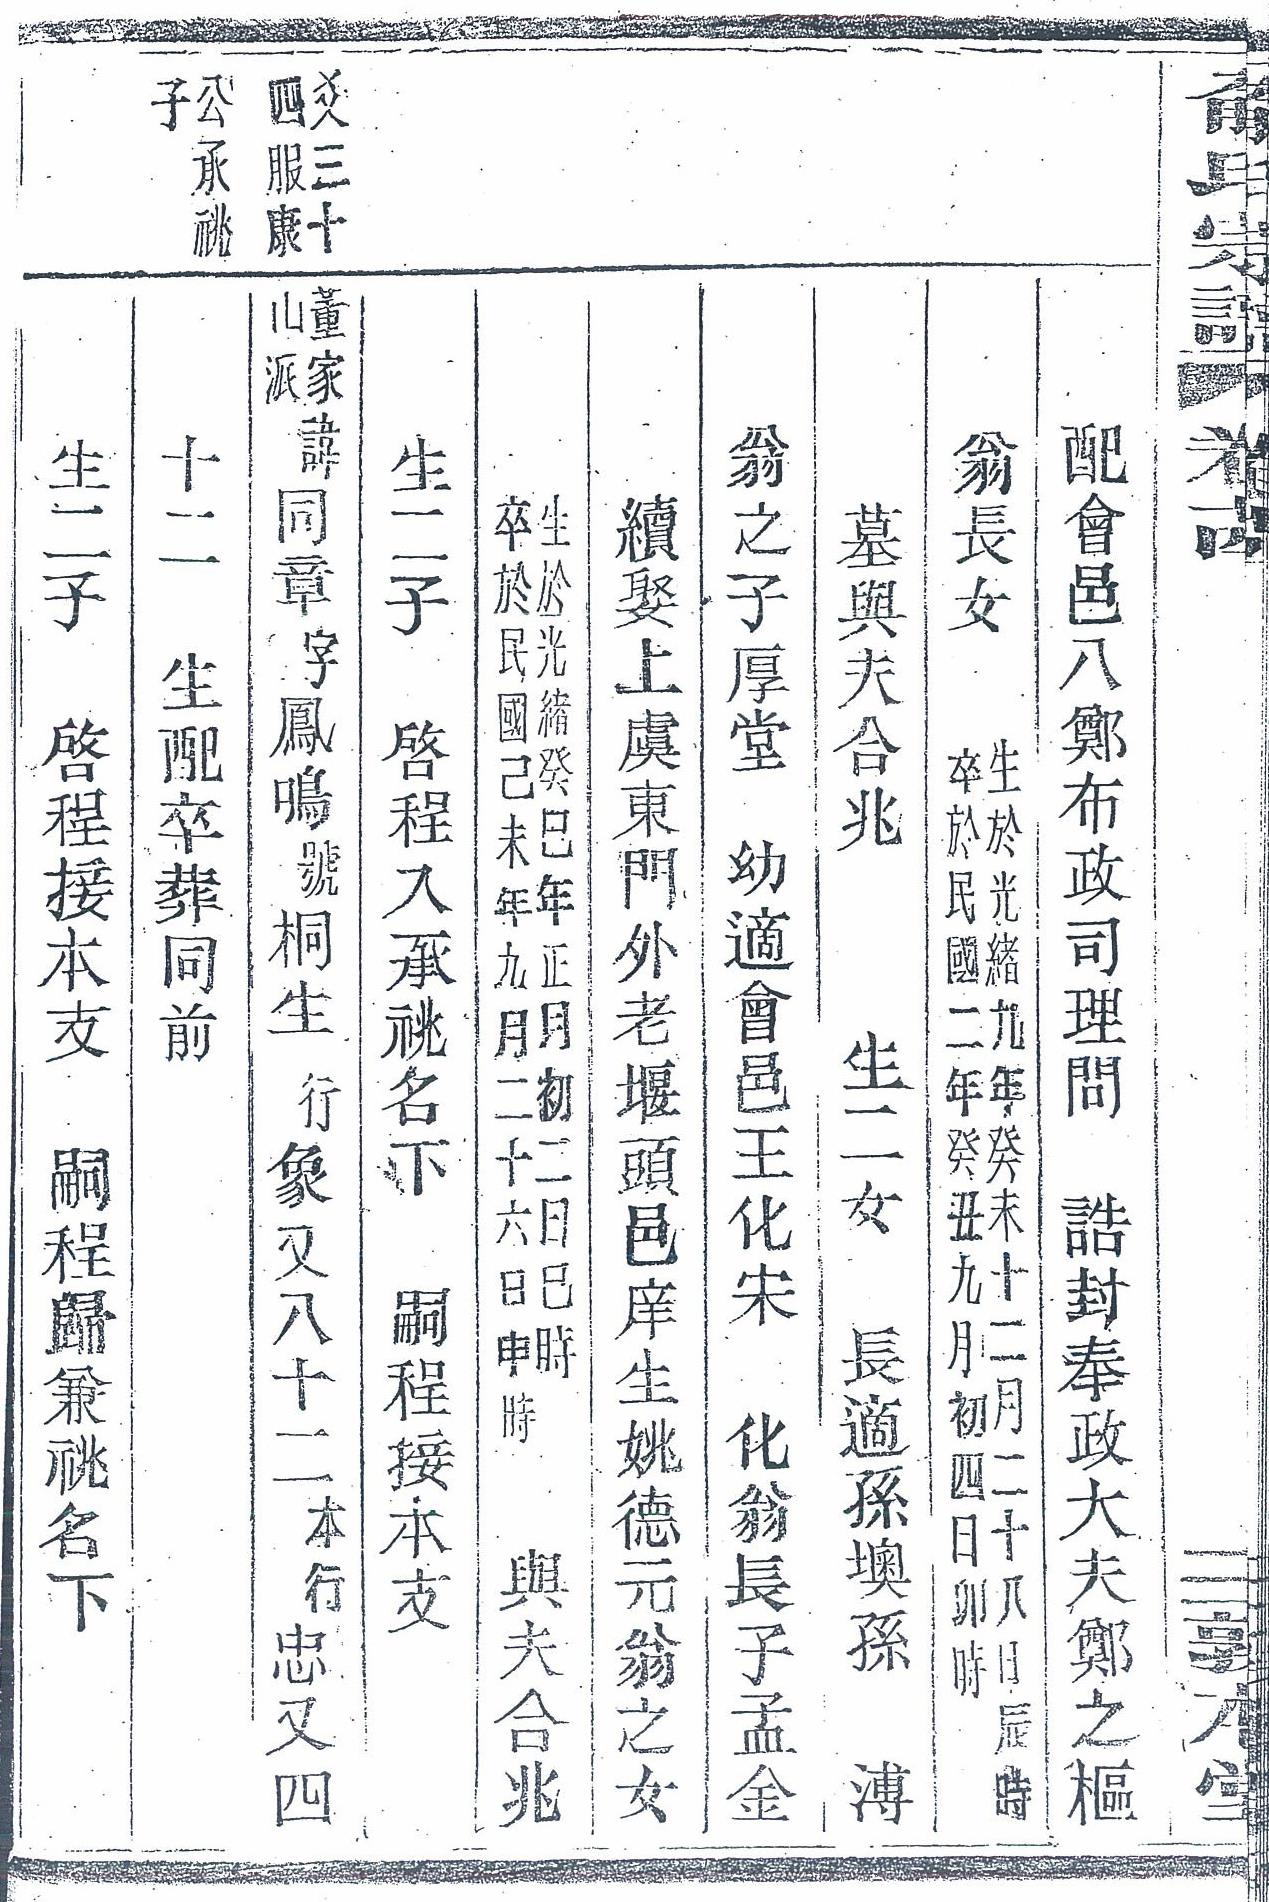 宗譜 卷
配會邑八鄭布政司理問 誥封奉政大夫鄭之樞
翁長女 生於光緒九年癸未十二月二十八日辰時
卒於民國二年癸丑九月初四日卯時
墓與夫合兆 生二女 長適孫墺孫 溥
翁之子厚堂 幼適會邑王化宋 化翁長子孟金
續娶上虞東門外老堰頭邑庠生姚德元翁之女
生於光緒癸巳年正月初二日巳時
卒於民國己未年九月二十六日申時 與夫合兆
生二子 啓程入承祧名下 嗣程接本支
三十
四服康
公承祧
子
董家
山派 諱同章字鳳鳴號桐生 行象又八十二本行忠又四
十二 生配卒葬同前
生二子 啓程接本支 嗣程歸兼祧名下